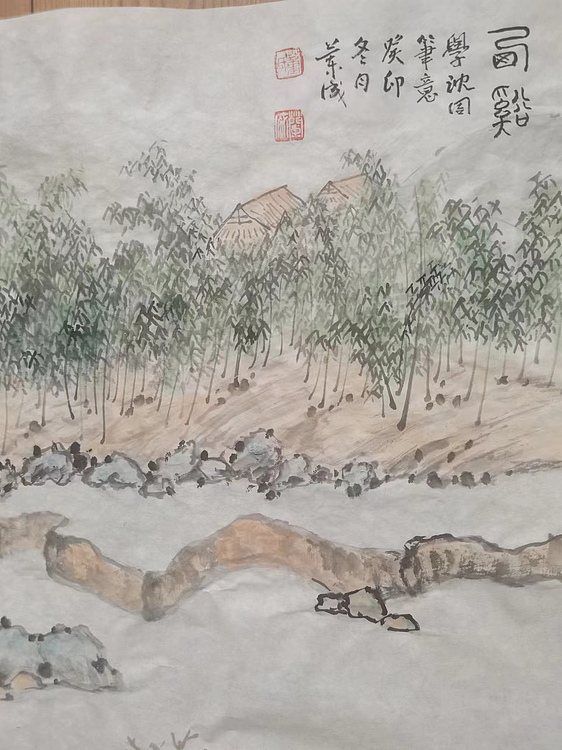 西谿
學沈周
筆意
癸卯
冬月
成